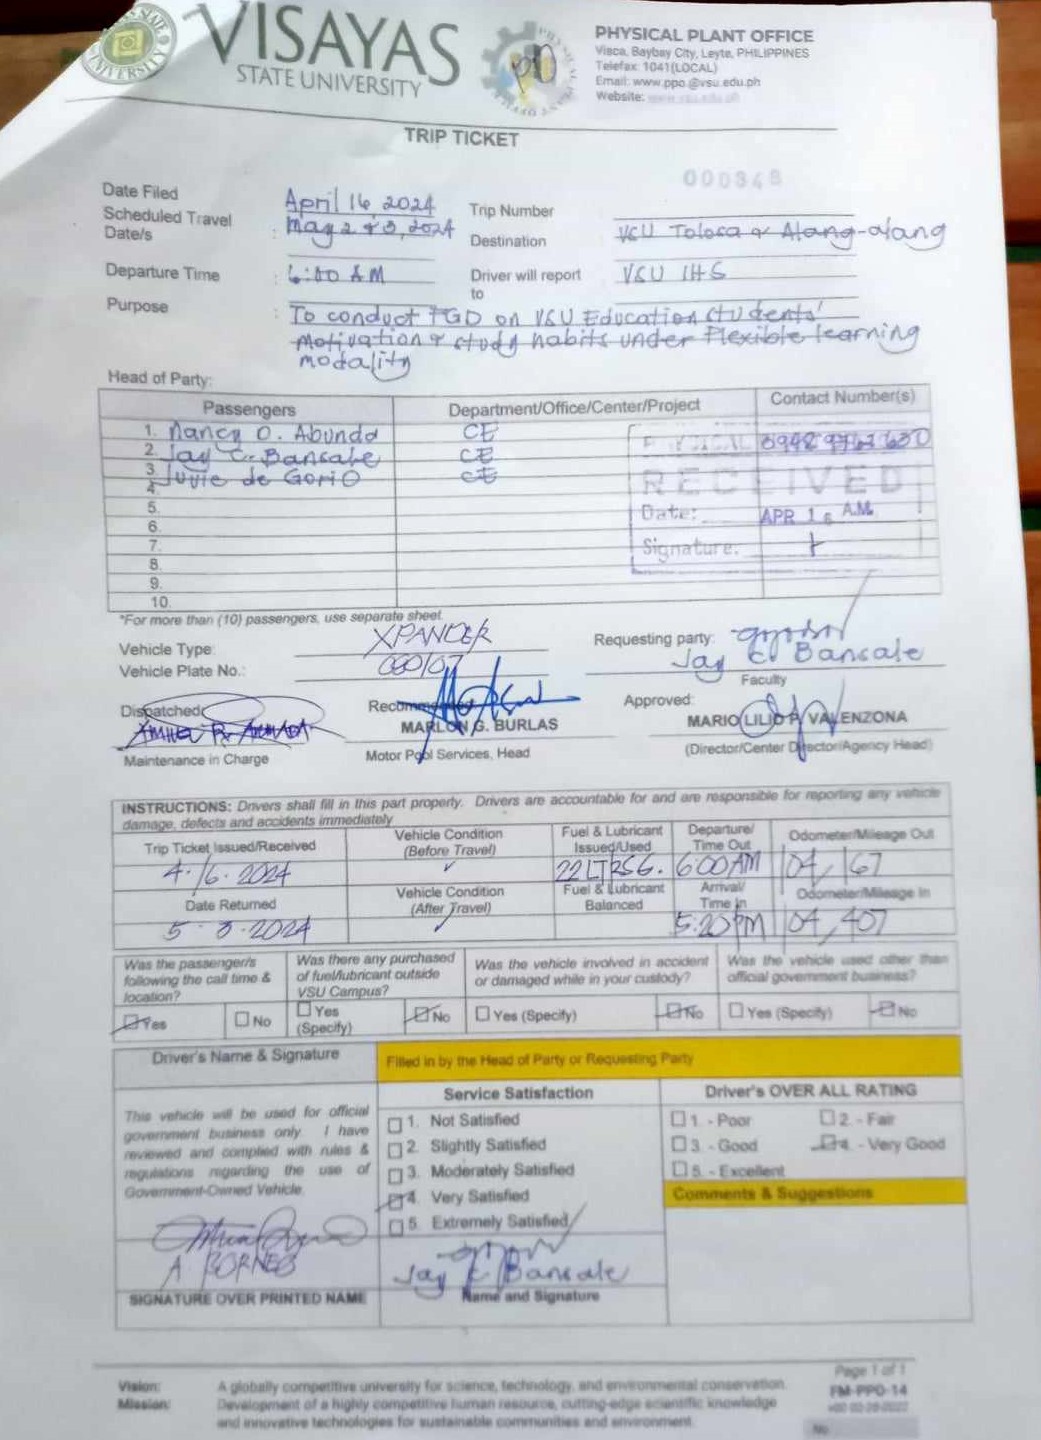 VISAYAS
STATE UNIVERSITY
PHYSICAL PLANT OFFICE
Visca, Baybay City, Leyte, PHILIPPINES
Telefax: 1041(LOCAL)
Email: www.ppo.@vsu.edu.ph
Website:
TRIP TICKET
000348
Date Filed April 16, 2024 Trip Number
Scheduled Travel Date/s : May 2 & 3, 2024 Destination VSU Tolosa & Alang-alang
Departure Time : 6:00 AM Driver will report to VSU IHS
Purpose : To conduct FGD on VSU Education students'
Motivation & study habits under Flexible learning
modality
Head of Party:
Passengers Department/Office/Center/Project Contact Number(s)
1. Nancy O. Abunda CE
2. Jay C. Bansale CE
3. Juvie de Gorio CE
4.
5.
6.
7.
8.
9.
10.
PHYSICAL
RECEIVED
Date: APR 16 A.M.
Signature:
*For more than (10) passengers, use separate sheet.
Vehicle Type: XPANDER Requesting party:
Jay C. Bansale
Vehicle Plate No.: Faculty
Dispatched: Recommended Approved:
MARLON G. BURLAS MARIO LILIO P. VALENZONA
Maintenance in Charge Motor Pool Services, Head (Director/Center Director/Agency Head)
INSTRUCTIONS: Drivers shall fill in this part properly. Drivers are accountable for and are responsible for reporting any vehicle
damage, defects and accidents immediately
Trip Ticket Issued/Received Vehicle Condition (Before Travel) Fuel & Lubricant Issued/Used Departure/ Time Out Odometer/Mileage Out
4.16.2024 ✓ 22LTRSG. 6:00AM 104,167
Date Returned Vehicle Condition (After Travel) Fuel & Lubricant Balanced Arrival/ Time In Odometer/Mileage In
5.3.2024 ✓ 5:20PM 104,407
Was the passenger/s following the call time & location? Was there any purchased of fuel/lubricant outside VSU Campus? Was the vehicle involved in accident or damaged while in your custody? Was the vehicle used other than official government business?
Yes No Yes (Specify) No Yes (Specify) No Yes (Specify) No
Driver's Name & Signature Filled in by the Head of Party or Requesting Party
Service Satisfaction Driver's OVER ALL RATING
This vehicle will be used for official
government business only. I have
reviewed and complied with rules &
regulations regarding the use of
Government-Owned Vehicle.
1. Not Satisfied
2. Slightly Satisfied
3. Moderately Satisfied
4. Very Satisfied
5. Extremely Satisfied
1. - Poor 2. - Fair
3. - Good 4. - Very Good
5. - Excellent
Comments & Suggestions
A BORNEO Jay C. Bansale
SIGNATURE OVER PRINTED NAME Name and Signature
Page 1 of 1
Vision: A globally competitive university for science, technology, and environmental conservation.
FM-PPO-14
Mission: Development of a highly competitive human resource, cutting-edge scientific knowledge
and innovative technologies for sustainable communities and environment.
No